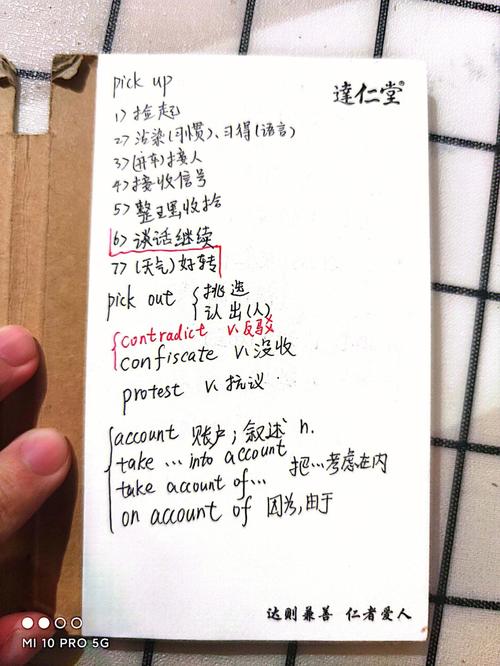 pick up
達仁堂®
1> 捡起
2> 沾染(习惯)、习得(语言)
3> (开车)接人
4> 接收信号
5> 整理收拾
6> 谈话继续
7> (天气)好转
pick out { 挑选
认出(人)
contradict v.反驳
confiscate v.没收
protest v.抗议
account 账户;叙述 n.
take ... into account
take account of... 把...考虑在内
on account of 因为,由于
达则兼善 仁者爱人
MI 10 PRO 5G